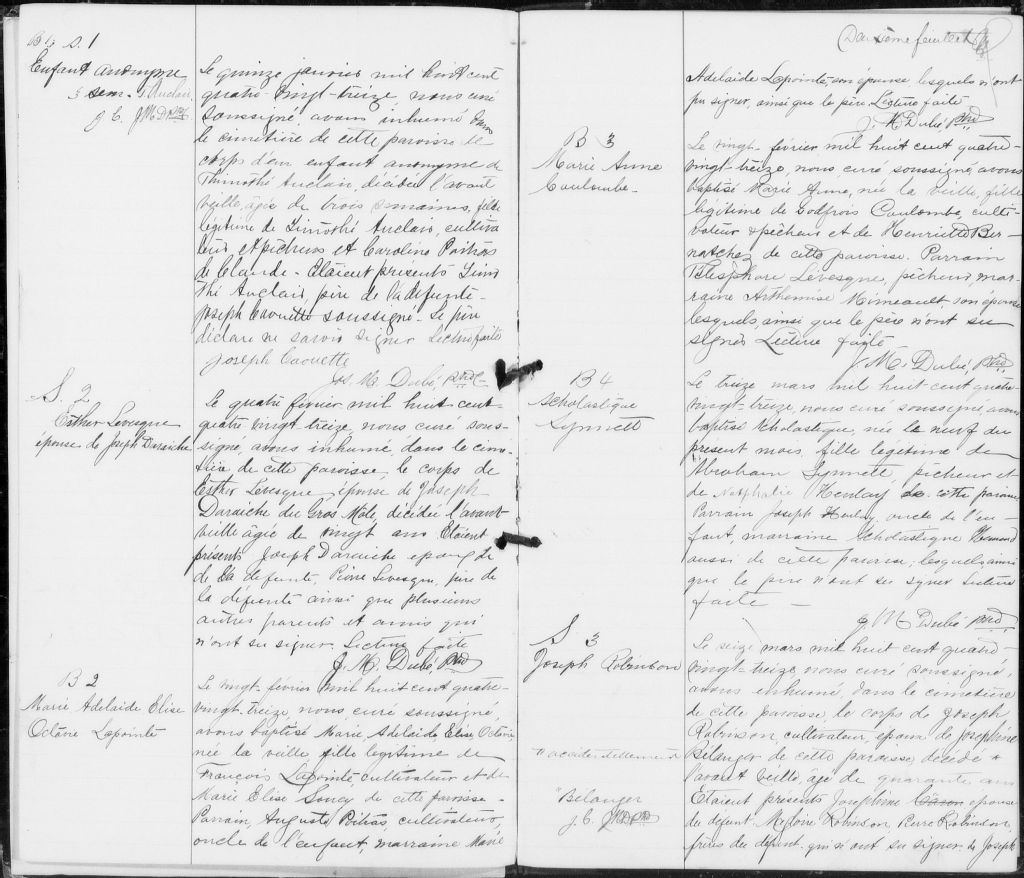 S. 1
Enfant anonyme
3 sem. T. Auclair
J. C. JMD Ptre
Le quinze janvier mil huit cent
quatre-vingt-treize nous curé
soussigné, avons inhumé dans
le cimetière de cette paroisse le
corps d'un enfant anonyme de
Thimothé Auclair, décédée l'avant
veille, âgée de trois semaines, fille
légitime de Timothé Auclair, cultiva
teur et pêcheur et Caroline Poitras
de Claude - Etaient présents Timo
thé Auclair, père de la défunte -
Joseph Caouette soussigné - Le père
déclare ne savoir signer Lecture faite
Joseph Caouette
Js. M. Dubé Ptre
S. 2
Esther Levesque
épouse de Joseph Daraiche
Le quatre février mil huit cent
quatre vingt-treize, nous curé sous-
signé, avons inhumé dans le cime-
tière de cette paroisse le corps de
Esther Levesque épouse de Joseph
Daraiche du Gros Mâle, décédée l'avant
veille âgée de vingt ans Etaient
présents Joseph Daraiche epoux de
de la défunte, Pierre Levesque, père de
la défunte ainsi que plusieurs
autres parents et amis qui
n'ont su signer. Lecture faite
J. M. Dubé Ptre
B 2
Marie Adelaide Elise
Octavie Lapointe
Le vingt-février mil huit cent quatre-
vingt-treize, nous curé soussigné,
avons baptisé Marie Adelaide Elise Octavie,
née la veille, fille légitime de
François Lapointe cultivateur et de
Marie Elise Soucy de cette paroisse -
Parrain, Auguste Poitras, cultivateur,
oncle de l'enfant, marraine Marie
Deuxième feuillet
Adelaide Lapointe son épouse lesquels n'ont
pu signer, ainsi que le père Lecture faite
J. M. Dubé Ptre
B 3
Marie Anne
Coulombe -
Le vingt-février mil huit cent quatre-
vingt-treize, nous curé soussigné, avons
baptisé Marie Anne, née la veille, fille
légitime de Godfroi Coulombe, culti-
vateur & pêcheur et de Henriette Ber-
natchez de cette paroisse. Parrain
Télesphore Lévesque, pêcheur, mar-
raine Arthemise Mimeault son épouse
lesquels, ainsi que le père n'ont su
signer Lecture faite
J. M. Dubé Ptre
B 4
Scholastique
Synnett
Le treize mars mil huit cent quatre-
vingt-treize, nous curé soussigné avons
baptisé Scholastique, née le neuf du
présent mois, fille légitime de
Abraham Synnett, pêcheur et
de Nathalie Henley de cette paroisse
Parrain Joseph Henley, oncle de l'en-
fant, marraine Scholastique
aussi de cette paroisse, lesquels ainsi
que le père n'ont su signer Lecture
faite -
J M Dubé Ptre
S 3
Joseph Robinson
Le seize mars mil huit cent quatre-
vingt-treize, nous curé soussigné,
avons inhumé, dans le cimetière
de cette paroisse, le corps de Joseph
Robinson, cultivateur, époux de Josephine
Bélanger de cette paroisse, décédé
l'avant veille, age de quarante ans
Etaient présents Josephine Caron epouse
du defunt, Magloire Robinson, Pierre Robinson,
frères du defunt qui n'ont su signer. de Joseph
accidentellement
Belanger
J. C. JMD Ptre